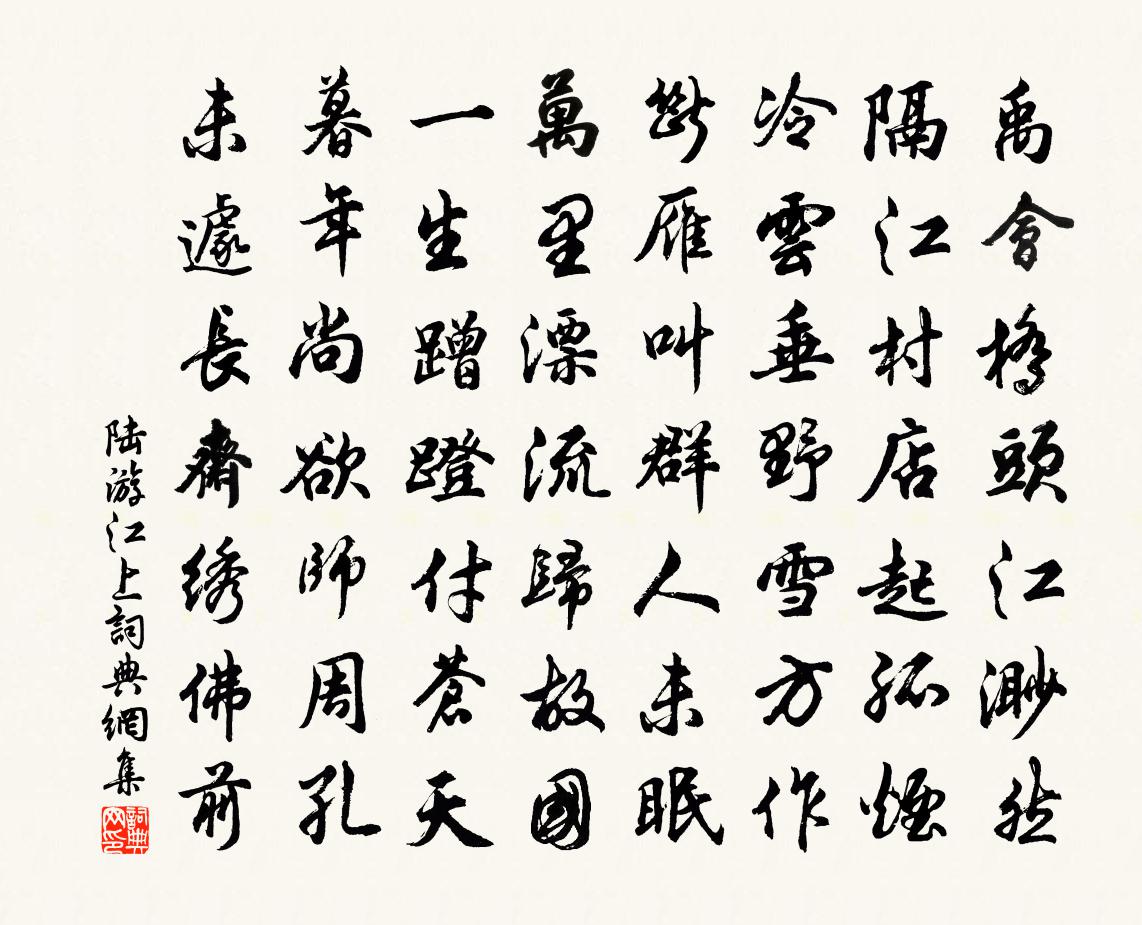 禹會橋頭江渺然
隔江村店起孤煙
冷雲垂野雪方作
斷雁叫群人未眠
萬里漂流歸故國
一生蹭蹬付蒼天
暮年尚欲師周孔
未遽長齋繡佛前
陆游江上詞典網集
詞典网印